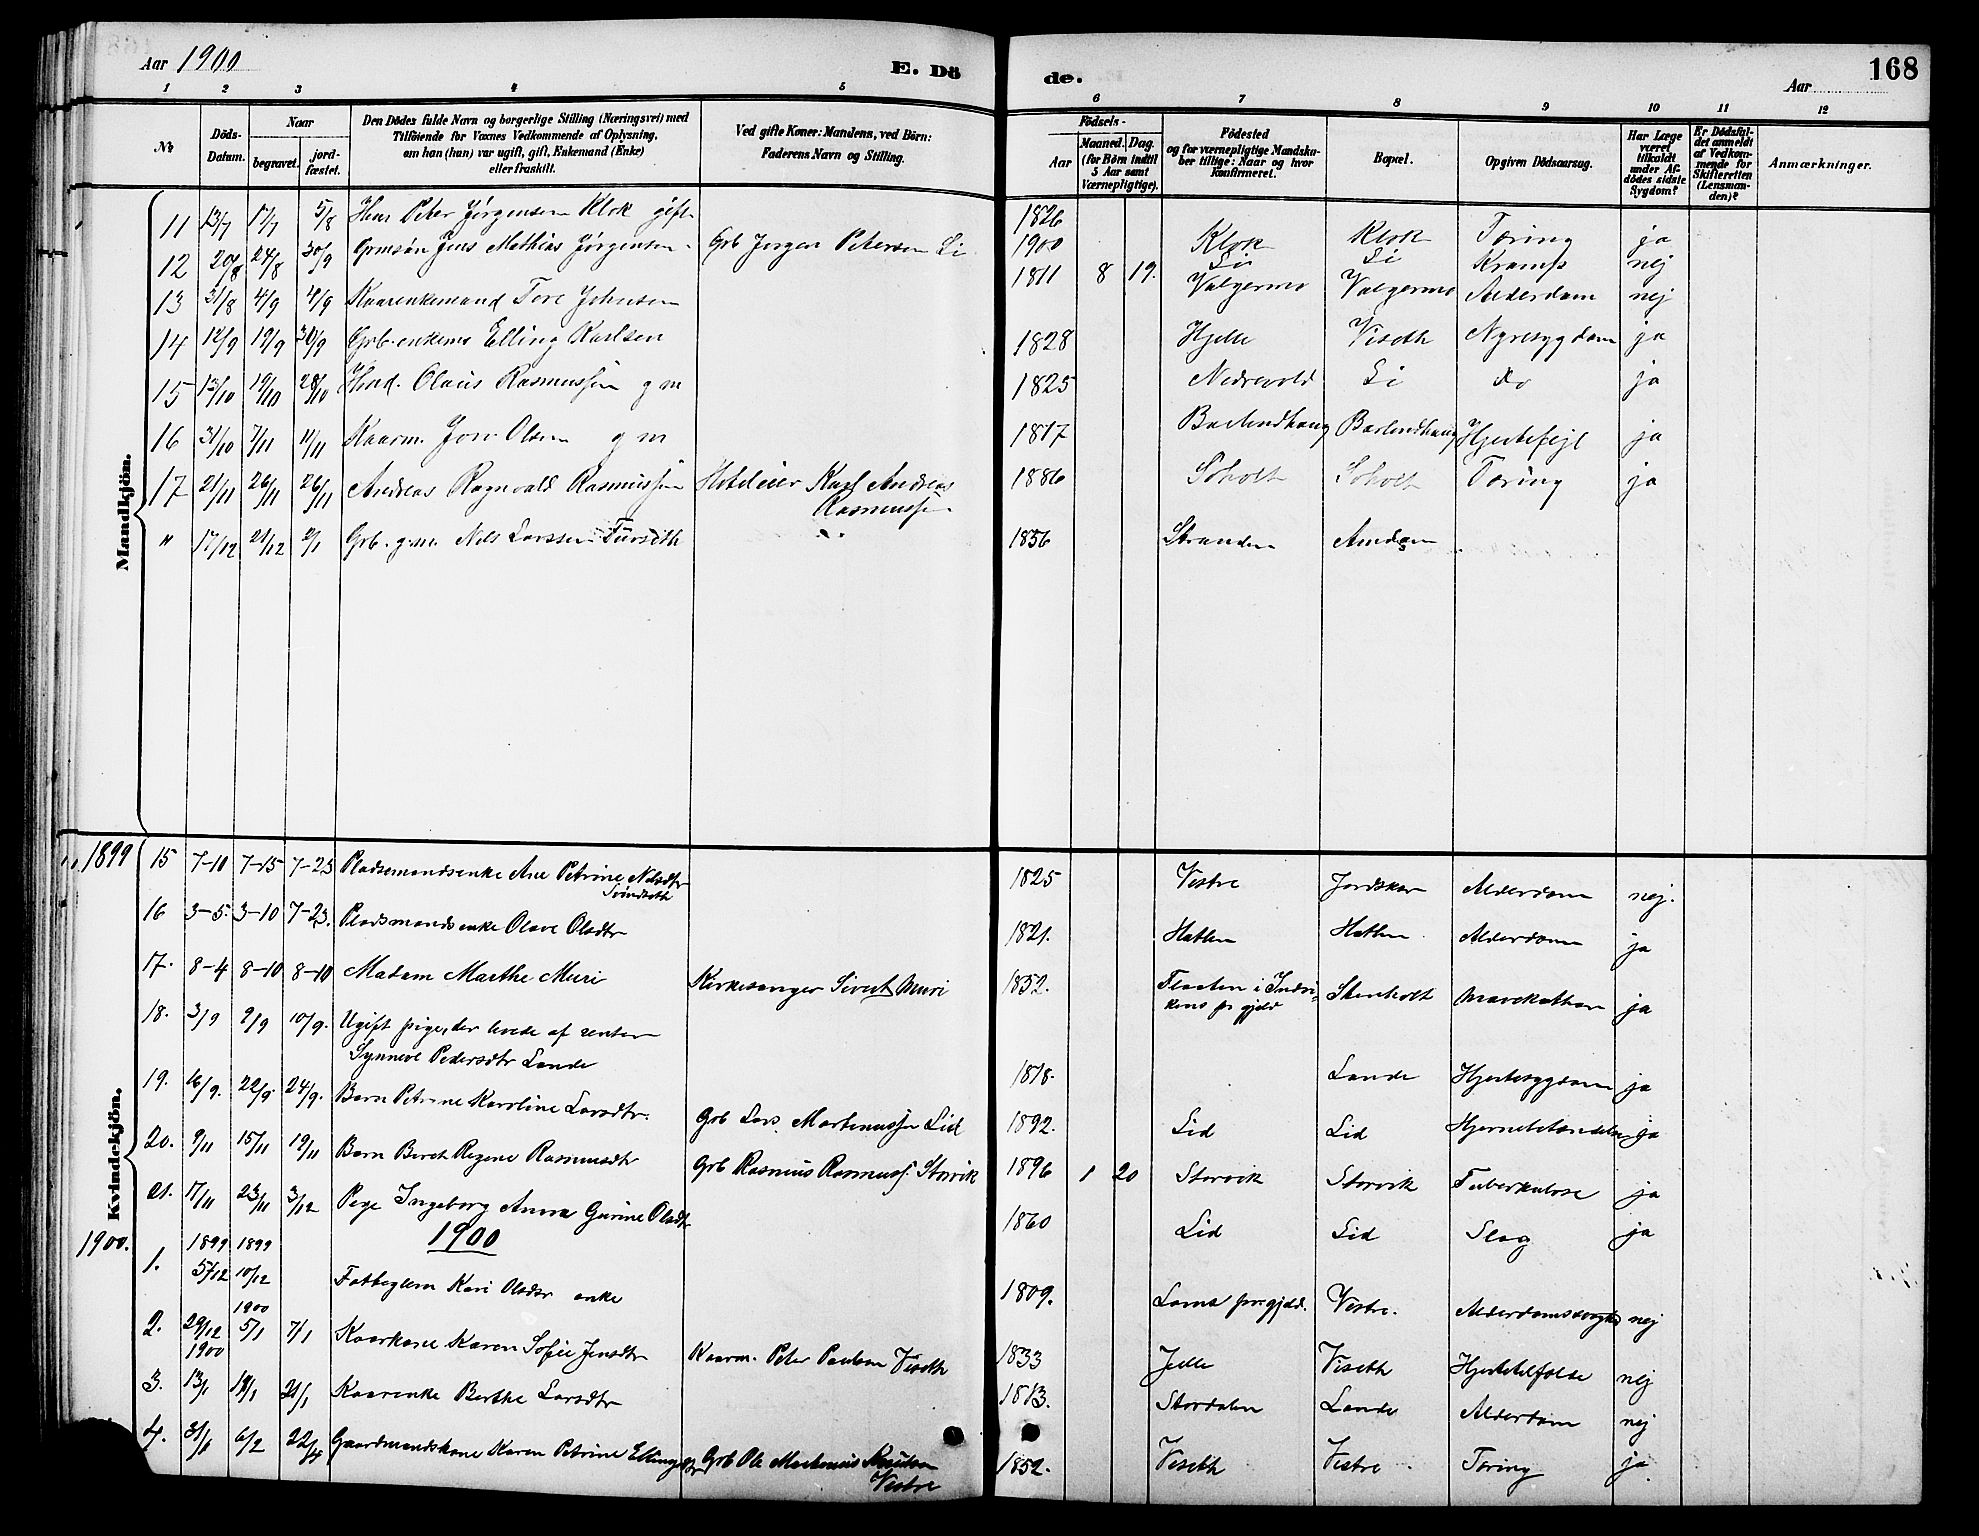 Aar 1900 E. Dö de. Aar 168
1 2 3 4 5 6 7 8 9 10 11 12
No
Döds-Datum.
Naar
begravet.
jordfæstet.
Den Dødes fulde Navn og borgerlige Stilling (Næringsvei) med
Tilföiende for Voxnes Vedkommende af Oplysning,
om han (hun) var ugift, gift, Enkemand (Enke)
eller fraskilt.
Ved gifte Koner: Mandens, ved Börn:
Faderens Navn og Stilling.
Födsels-
Aar
Maaned. Dag.
(for Börn indtil
5 Aar samt
Værnepligtige).
Födested
og for værnepligtige Mandskaber tillige: Naar og hvor
konfirmeret.
Bopæl.
Opgiven Dödsaarsag.
Har Læge
været
tilkaldt
under Afdödes sidste
Sygdom?
Er Dödsfaldet anmeldt
af Vedkommende for
Skifteretten
(Lensmanden)?
Anmærkninger.
Mandkjön.
11 13/7 17/7 5/8 Huus Peter Jörgensen Klok gift 1826 Klok Klok Tæring ja
12 20/8 24/8 30/9 Grmsön Jens Mathias Jörgensen Grb Jörgen Petersen Li 1900 8 19. Li Li Kramp nej
13 31/8 4/9 4/9 Kaarenkemand Tore Johnsen 1811 Valgermo Valgermo Alderdom nej
14 12/9 19/9 30/9 Grb. enkem Elling Karlsen 1828 Hjelle Viseth Nyresygdom ja
15 13/10 19/10 28/10 Huus. Olaus Rasmussen g m 1825 Nedrevold Li do ja
16 31/10 7/11 11/11 Kaarm. Jon Olsen g m 1817 Barlindhaug Barlindhaug Hjertefejl ja
17 21/11 26/11 26/11 Andreas Ragnvald Rasmussen Hoteleier Karl Andreas
Rasmussen 1886 Soholt Soholt Tæring ja
" 17/12 21/12 2/1 Grb. g.m. Nils Larssen Furseth 1856 Stranden Amdam
Kvindekjön.
1899 15 7-10 7-15 7-23 Pladsemandsenke Ane Petrine Nilsdtr 1825 Vestre Jordskar Alderdom nej.
16 3-5. 3-10 7-23. Pladsmandsenke Olave Olsdtr 1821. Hatlen Hatlen Alderdom ja
17. 8-4 8-10 8-10 Madam Marthe Muri Kirkesanger Sivert Muri 1852. Flaaten i Indvikens pr gjeld Stenholt Mavekatharr ja
18. 3/9 9/9 10/9. Ugift pige, der levede af renter
Synneve Pedersdtr Lande 1818. Lande Hjertesygdom ja
19. 16/9. 22/9 24/9. Barn Petrine Karoline Larsdtr. Grb Lars Martinussen Lid 1892. Lid Lid Hjernebetændelse ja
20. 9/11 15/11 19/11 Barn Beret Regine Rasmusdtr Grb Rasmus Rasmuss. Storvik 1896 1 20 Storvik Storvik Tuberkulose ja
21. 17/11 23/11 3/12 Pige Ingeborg Anna Gurine Olsdtr 1860 Lid Lid Slag ja
1900
1900. 1. 1899 5/12 1899 10/12 Fattiglem Kari Olsdtr enke 1809. Loms pr.gjeld. Vestre. nej
2. 29/12 1900 5/1 7/1 Kaarkone Karen Sofie Jensdtr Kaarm. Peter Paulsen Viseth 1833 Jelle Viseth Hjertetilfælde nej
3. 1900 13/1 19/1 21/1 Kaarenke Berthe Larsdtr 1813. Stordalen Lande Alderdom nej
4. 31/1 6/2 22/4 Gaardmandskone Karen Petrine Ellingsdtr Grb Ole Martinus Knutsen
Vestre 1852. Viseth Vestre Tæring ja